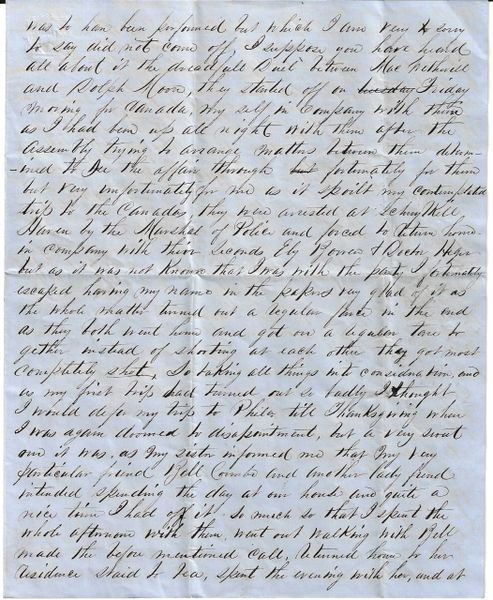 was to han been performed but which I am very to sorry
to say did not come off, I suppose you have heard
all about it the dreadfull Duel between Mac
and Dolph Moon, they started off on tuesday Friday
morning for Canada, my self in Company with them
as I had been up all night with them after the
Assembly trying to arrange matters between them deter-
-mned to see the affair through but fortunately for them
but very unfortunately for me as it spoilt my contemplated
trip to the Canadas, they were arrested at Schuylkill
Haven by the Marshal of Police and forced to return home
in company with their seconds Ely & Doctor
but as it was not known that I was with the party, I fortunately
escaped having my name in the papers very glad of it as
the whole matter turned out a regular farce in the end
as they both went home and got on a regular tare to
gether instead of shooting at each other they got most
completely shot, So taking all things into consideration, and
as my first trip had turned out so badly I thought
I would defer my trip to Philad till Thanksgiving when
I was again doomed to disapointment, but a very sweet
one it was, as my sister informed me that my very
particular friend Bell Combe and another lady friend
intended spending the day at our house and quite a
nice time I had of it. so much so that I spent the
whole afternoon with them, went out walking with Bell
made the before mentioned call, returned home to her
residence staid to tea, spent the evening with her, and at